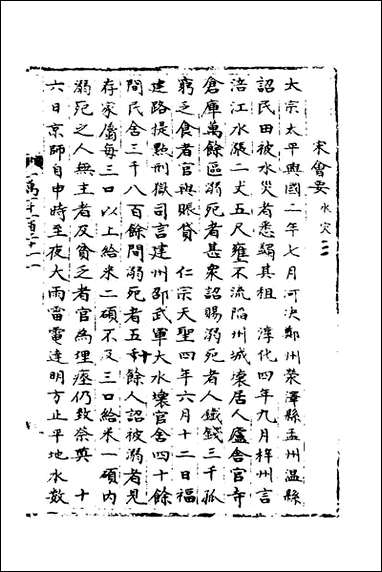 宋會要 水災二
太宗太平興國二年七月河決鄭州滎澤縣孟州溫縣
詔民田被水災者悉蠲其租 淳化四年九月梓州言
涪江水漲二丈五尺壅不流陷州城壞居人廬舍官寺
倉庫萬餘區溺死者甚衆詔賜溺死者人鐵錢三千孤
窮乏食者官與賑貸 仁宗天聖四年六月十二日福
建路提點刑獄司言建州邵武軍大水壞官舍四十餘
間民舍三千八百餘間溺死者五十餘人詔被溺者見
存家屬每三口以上給米二碩不及三口給米一碩內
溺死之人無主者及貧乏者官為埋瘞仍致祭奠 十
六日京師自申時至夜大雨雷電達明方止平地水數